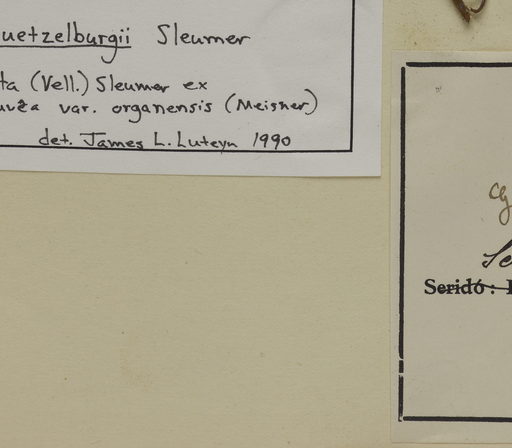 uetzelburgii Sleumer
ta (Vell.) Sleumer ex
var. organensis (Meisner)
det. James L. Luteyn 1990
Seridó: